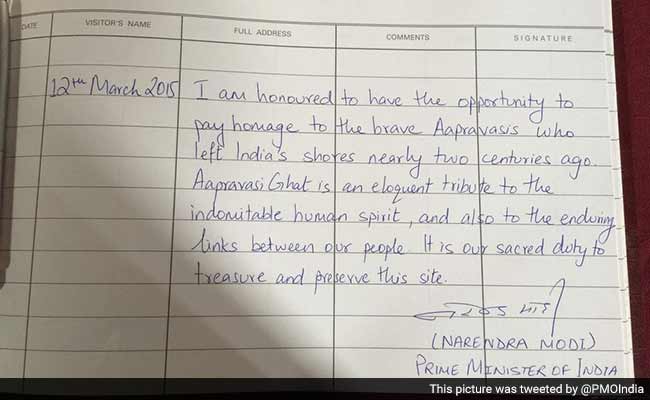 DATE VISITOR'S NAME FULL ADDRESS COMMENTS SIGNATURE
12th March 2015 I am honoured to have the opportunity to
pay homage to the brave Aapravasis who
left India's shores nearly two centuries ago.
Aapravasi Ghat is an eloquent tribute to the
indomitable human spirit, and also to the enduring
links between our people. It is our sacred duty to
treasure and preserve this site.
(NARENDRA MODI)
PRIME MINISTER OF INDIA
This picture was tweeted by @PMOIndia